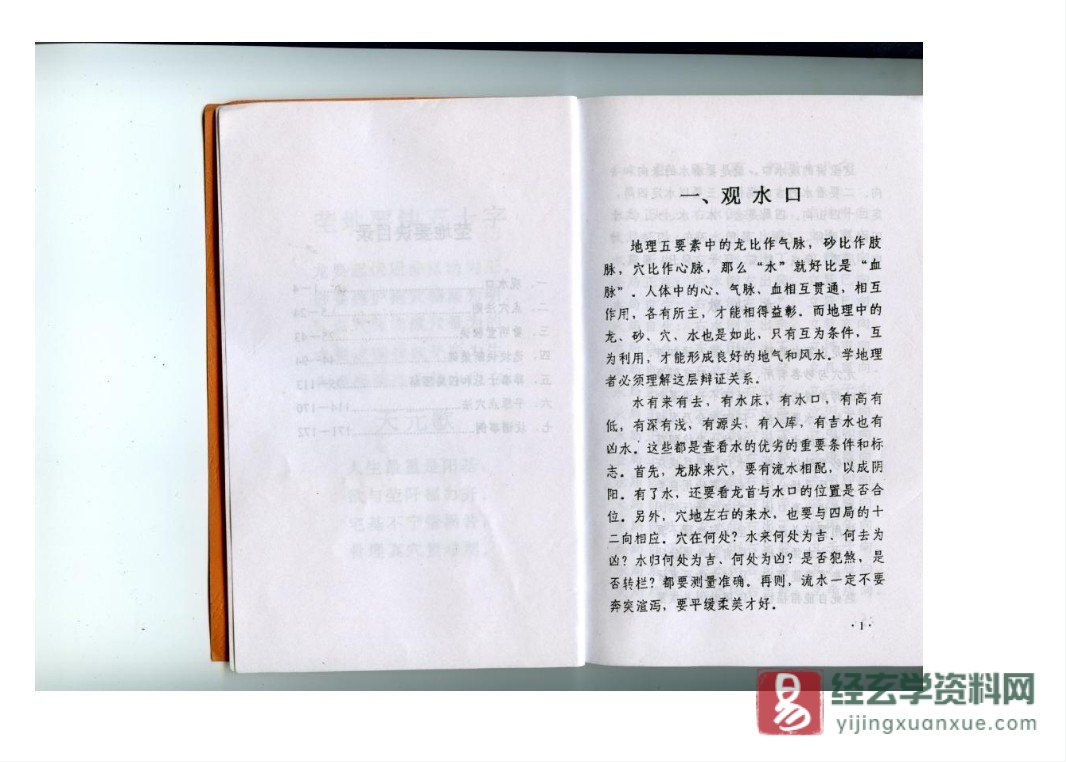 一、观水口
地理五要素中的龙比作气脉，砂比作肢
脉，穴比作心脉，那么“水”就好比是“血
脉”。人体中的心、气脉、血相互贯通，相互
作用，各有所主，才能相得益彰。而地理中的
龙、砂、穴、水也是如此，只有互为条件，互
为利用，才能形成良好的地气和风水。学地理
者必须理解这层辩证关系。
水有来有去，有水床，有水口，有高有
低，有深有浅，有源头，有入库，有吉水也有
凶水。这些都是查看水的优劣的重要条件和标
志。首先，龙脉来穴，要有流水相配，以成阴
阳。有了水，还要看龙首与水口的位置是否合
位。另外，穴地左右的来水，也要与四局的十
二向相应。穴在何处？水来何处为吉、何去为
凶？水归何处为吉、何处为凶？是否犯煞，是
否转栏？都要测量准确。再则，流水一定不要
奔突渲泻，要平缓柔美才好。
·1·
易
经玄学资料网
yijingxuanxue.com